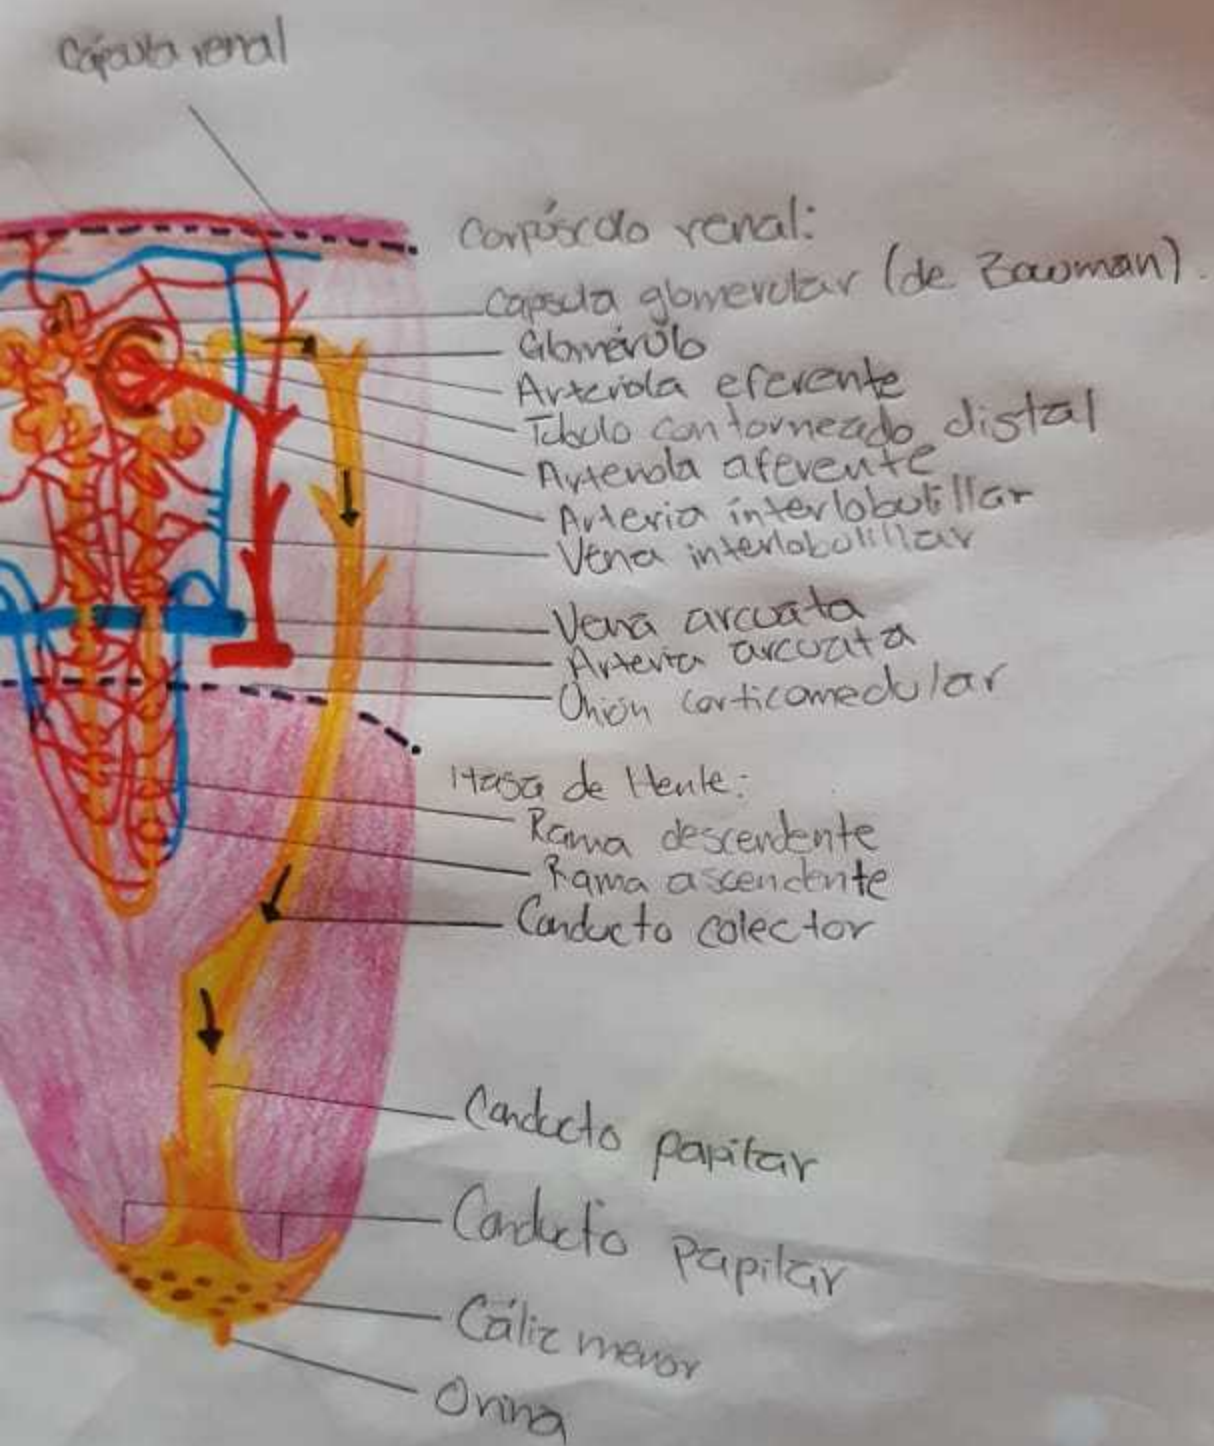 Cápsula renal
Corpúsculo renal:
Capsula glomerular (de Bowman).
Glomérulo
Arteriola eferente
Túbulo contorneado distal
Arteriola aferente
Arteria interlobulillar
Vena interlobulillar
Vena arcuata
Arteria arcuata
Unión corticomedular
Hasa de Henle:
Rama descendente
Rama ascendente
Conducto colector
Conducto papilar
Conducto papilar
Cáliz menor
Orina